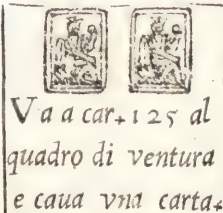 Va a car. 125 al
quadro di ventura
e caua vna carta.